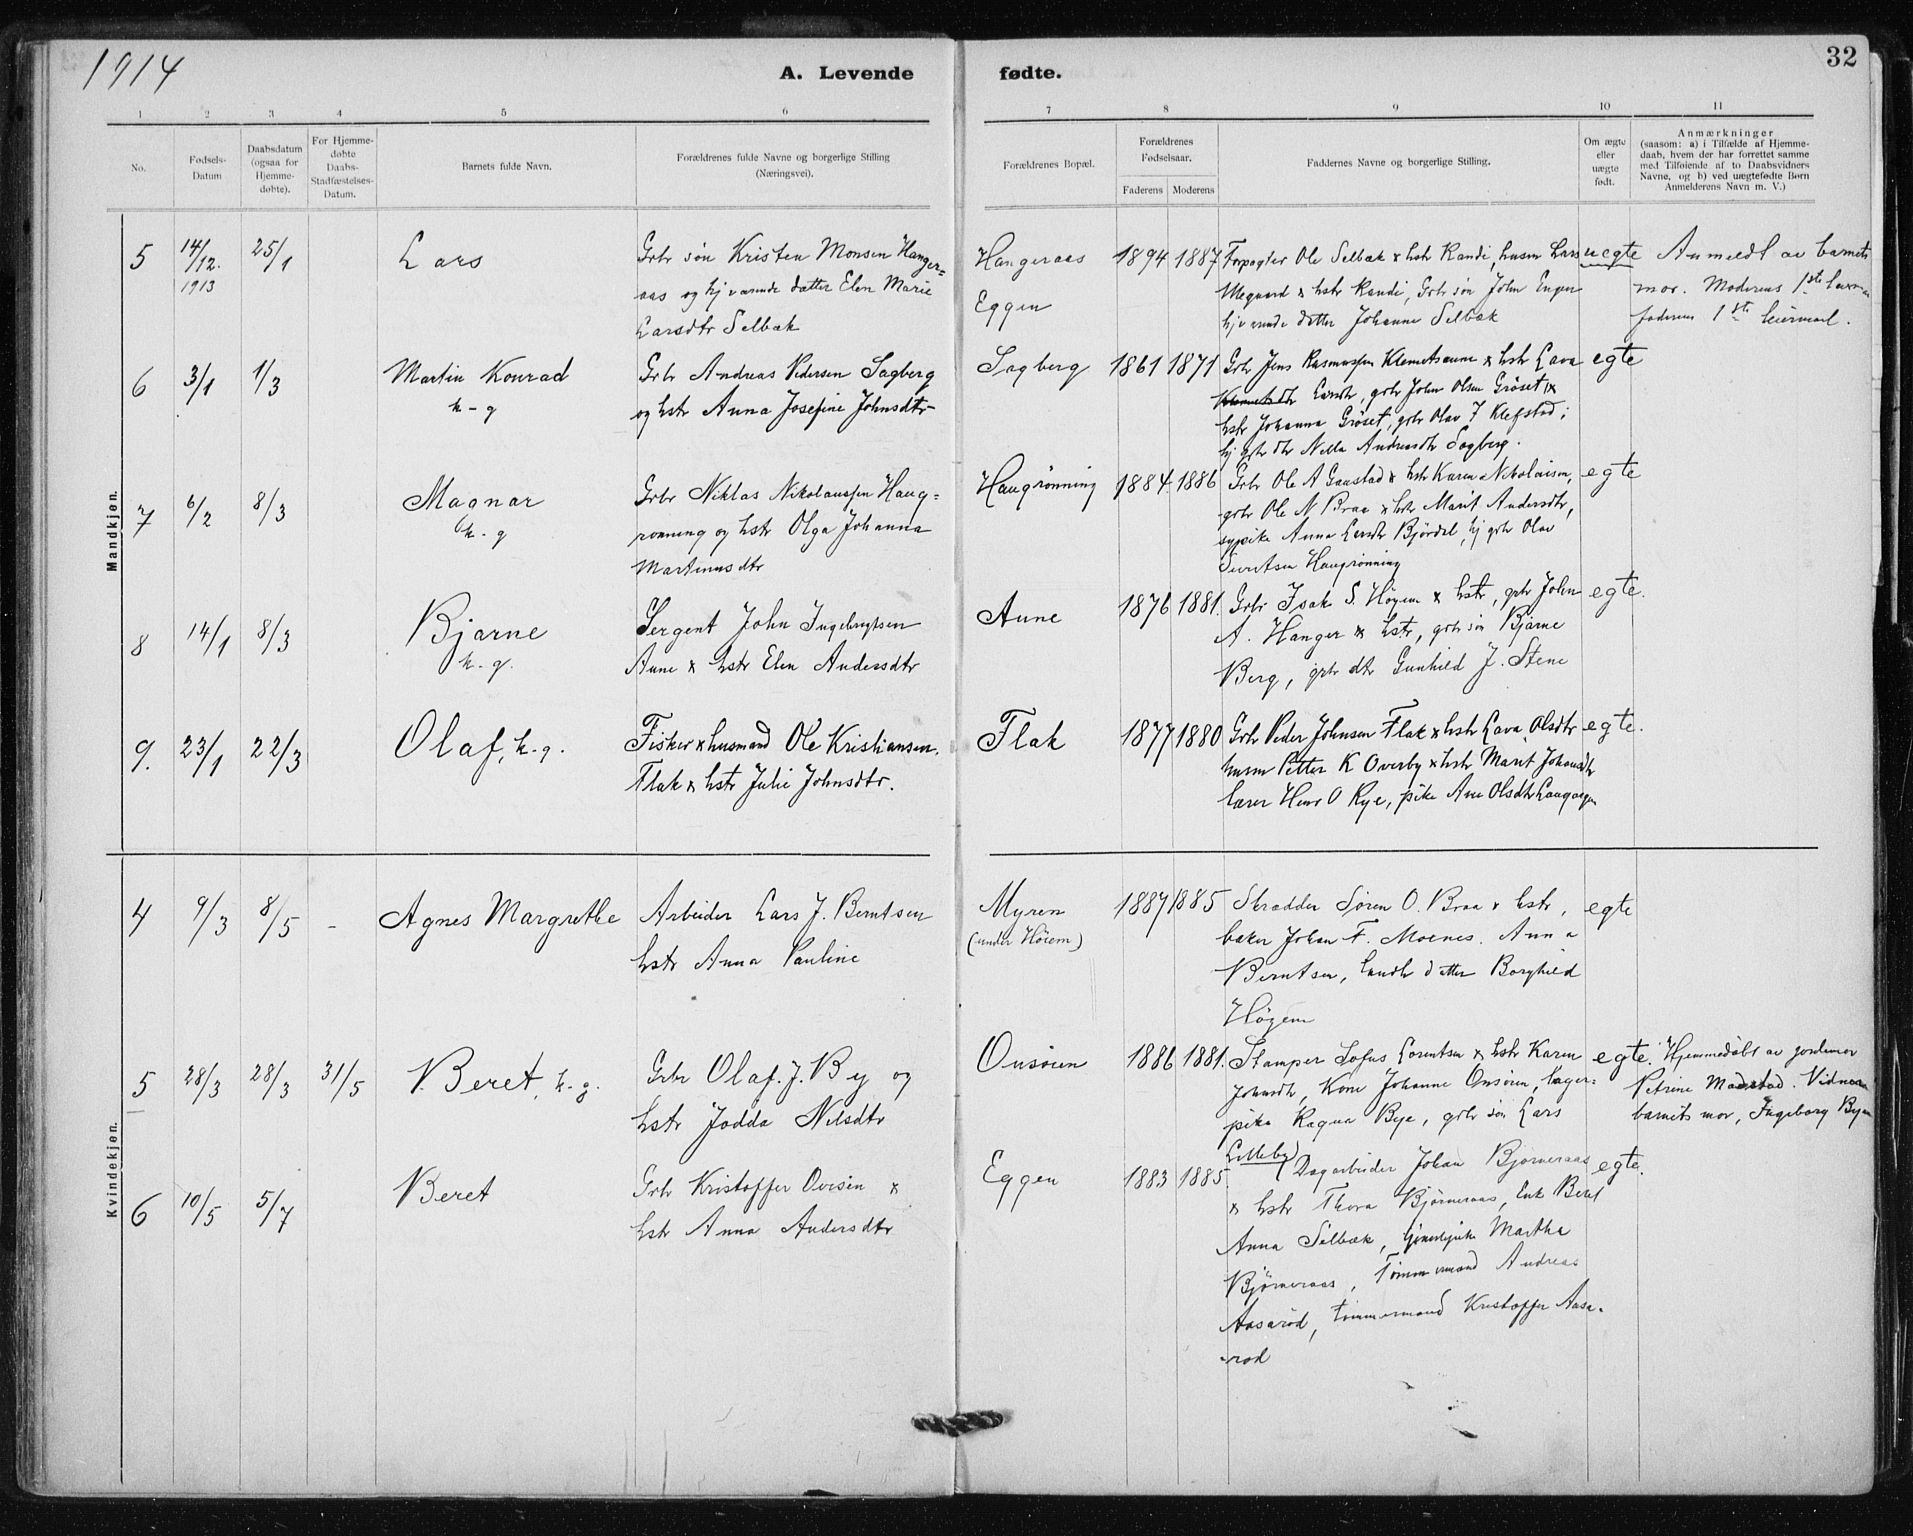 1914
A. Levende fødte.
32
1 2 3 4 5 6 7 8 9 10 11
No.
Fødsels-
Datum
Daabsdatum
(ogsaa for
Hjemme-
døbte).
For Hjemme-
døbte
Daabs-
Stadfæstelses-
Datum.
Barnets fulde Navn.
Forældrenes fulde Navne og borgerlige Stilling
(Næringsvei).
Forældrenes Bopæl.
Forældrenes
Fødselsaar.
Faderens Moderens
Faddernes Navne og borgerlige Stilling.
Om ægte
eller
uægte
født.
Anmærkninger
(saasom: a) i Tilfælde af Hjemme-
daab, hvem der har forrettet samme
med Tilføiende af to Daabsvidners
Navne, og b) ved uægtefødte Børn
Anmelderens Navn m. V.)
Mandkjøn.
5
14/12.
1913
25/1
Lars
Grbr søn Kristen Monsen Hanger-
aas og hjværende datter Elen Marie
Larsdtr Selbæk
Hangeraas
Eggen
1894 1887
Forpagter Ole Selbæk & hstr Randi, husm Lars
& hstr Randi, Grbr søn John
hjværende datter Johanna Selbæk
uegte
Anmeldt av barnets
mor. Moderens 1ste
faderens 1ste leiermaal.
6
3/1
1/3
Martin Konrad
h-g
Grbr Andreas Pedersen Sagberg
og hstr Anna Josefine Johnsdtr
Sagberg
1861 1871
Grbr Jens Rasmussen Klemetsaune & hstr Lava
Larsdtr, grbr John Olsen Grøset &
hstr Johanna Grøset, grbr Olav J Klefstad;
hj grbr dtr Nella Andreasdtr Sagberg.
egte
7
6/2
8/3
Magnar
h-g
Grbr Niklas Nikolaussen Haug-
rønning og hstr Olga Johanna
Martinusdtr
Haugrønning
1884 1886
Grbr Ole A Gaustad & hstr Karen Nikolaisen,
grbr Ole N Braa & hstr Marit Andersdtr,
sypike Anna Larsdtr Bjørdal, hj grbr Olav
Haugrønning
egte
8
14/1
8/3
Bjarne
h-g.
Sergent John Ingebrigtsen
Aune & hstr Elen Andersdtr
Aune
1876 1881.
Grbr Isak S. Høyem & hstr, grbr John
A. Hanger & hstr, grbr søn Bjarne
Berg, grbr dtr Gunhild J. Stene
egte.
9.
23/1
22/3
Olaf, h-g.
Fisker & husmand Ole Kristiansen
Flak & hstr Julie Johnsdtr.
Flak
1877 1880
Grbr Peder Johnsen Flak & hstr Lava Olsdtr
husm Petter K Overby & hstr Marit Johansdtr
lærer O Rye, pike Ane Olsdtr
egte.
Kvindekjøn.
4
9/3
8/5
-
Agnes Margrethe
Arbeider Lars J. Berntsen
hstr Anna Pauline
Myren
(under Höiem)
1887 1885
Skrædder Søren O. Braa & hstr,
baker Johan F. Moenes. Anna
Berntsen, landh datter Borghild
Høyem
egte
5
28/3
28/3
31/5
Beret, h-g.
Grbr Olaf. J. By og
hstr Jodda Nilsdtr
Onsöien
1886 1881.
Stamper Sofus Lorentsen & hstr Karen
Johnsdtr, Kone Johanne Onsöien,
pike Ragna Bye, grbr søn Lars
Lilleby
egte.
Hjemmedöbt av jordemor
Petrine Madstad. Vidner
barnets mor, Ingeborg
6
10/5
5/7
Beret
Grbr Kristoffer Ovesen &
hstr Anna Andersdtr
Eggen
1883 1885
Dagarbeider Johan Bjørneraas
& hstr Thora Bjørneraas, Enk Beret
Anna Selbæk, tjenestepike Martha
Bjørneraas, Tömmermand Andreas
Aasaröd, tömmermand Kristoffer Aasa-
röd
egte.